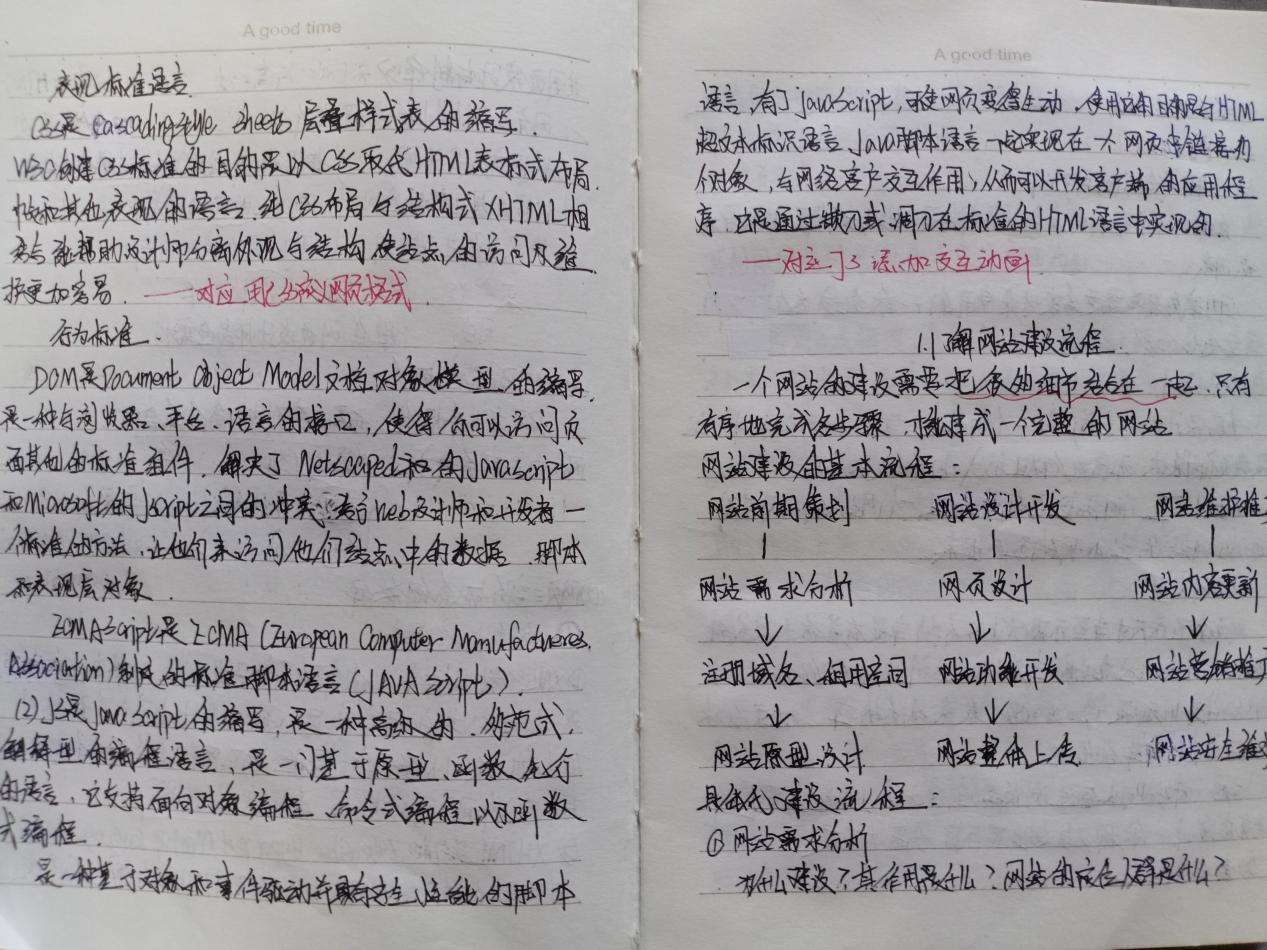 A good time
表现标准语言
CSS是Cascading style sheets层叠样式表的缩写.
W3C创建CSS标准的目的是以CSS取代HTML表标式布局.
和其他表现的语言.纯CSS布局与结构式XHTML相
能帮助设计师分离外观与结构使站点的访问及维
护更加容易. ——对应用CSS网页格式
行为标准.
DOM是Document Object Model文档对象模型的缩写.
是一种与浏览器、平台、语言的接口,使得你可以访问页
面其他的标准组件.解决了Netscaped和的Javascript
和Microsoft的Jscript之间的冲突.予web设计师和开发者一
个标准的方法,让他们来访问他们站点中的数据.脚本
和表现层对象.
ECMAScript是ECMA(European Computer Manufactureres
Association)制定的标准脚本语言(JAVAScript).
(2)JS是JavaScript的缩写,是一种高级的.多范式.
解释型的编程语言,是一门基于原型、函数先行
的语言,它支持面向对象编程.命令式编程以及函数
式编程.
是一种基于对象和事件驱动并具有安全性能的脚本
A good time
语言,有了javaScript,可使网页变得生动.使用它的目的是与HTML
超文本标识语言、Java脚本语言一起实现在一个网页中链接多
个对象,与网络客户交互作用,从而可以开发客户端的应用程
序.它是通过嵌入或调入在标准的HTML语言中实现的.
——对应JS添加交互动画
1.1了解网站建设流程.
一个网站的建设需要把很多细节结合在一起.只有
有序地完成各步骤.才能建成一个完整的网站
网站建设的基本流程:
网站前期策划 网站设计开发 网站维护推
网站需求分析 网页设计 网站内容更新
注册域名、租用空间 网站功能开发 网站营销推
网站原型设计 网站整体上传 网站安全维
具体化建设流程:
①网站需求分析
为什么建设?其作用是什么?网站的定位人群是什么?